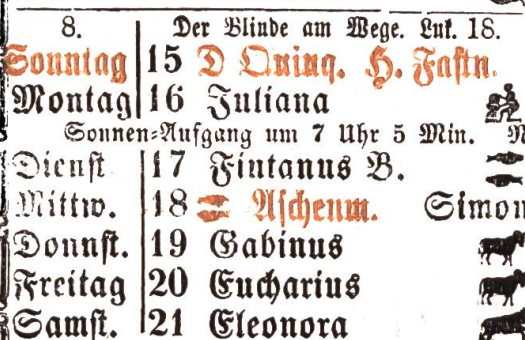 8. Der Blinde am Wege. Luk. 18.
Sonntag 15 D Quinq. H. Fastn.
Montag 16 Juliana
Sonnen-Aufgang um 7 Uhr 5 Min.
Dienst 17 Fintanus B.
Mittw. 18 Aschenm. Simon
Donnst. 19 Gabinus
Freitag 20 Eucharius
Samst. 21 Eleonora